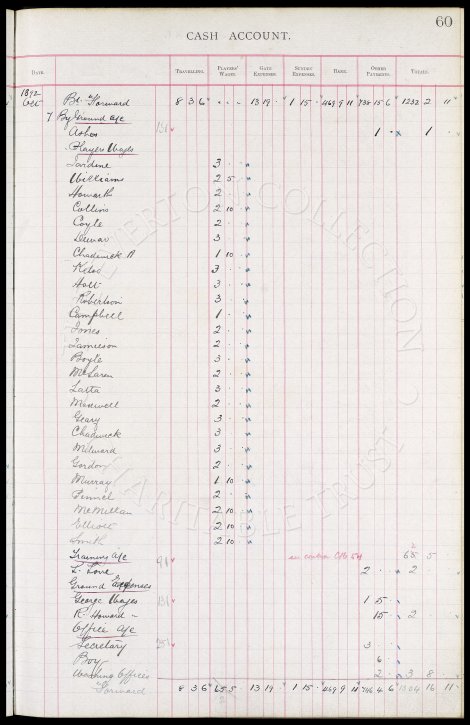 60
CASH ACCOUNT.
DATE. TRAVELLING. PLAYERS' WAGES. GATE EXPENSES. SUNDRY EXPENSES. BANK. OTHER PAYMENTS. TOTALS.
1892
Oct Bt. Forward 8 3 6 " " " 13 19 " 1 15 " 469 9 11 738 15 6 1232 2 11
7 By Ground a/c
Ashes 131 1 " " 1 "
Players Wages
Jardine 3 " "
Williams 2 5 "
Howarth 2 " "
Collins 2 10 "
Coyle 2 " "
Dewar 3 " "
Chadwick A 1 10 "
Kelso 3 " "
Holt 3 " "
Robertson 3 " "
Campbell 1 " "
Jones 2 " "
Jamieson 2 " "
Boyle 3 " "
McLaren 2 " "
Latta 3 " "
Maxwell 2 " "
Geary 3 " "
Chadwick 3 " "
Milward 3 " "
Gordon 2 " "
Murray 1 10 "
Pinnel 2 " "
McMillan 2 10 "
Elliott 2 10 "
Smith 2 10 "
65 5
Training a/c 91
L. Love 2 " " 2 "
Ground Expenses
George Wages 131 1 5 "
R. Howard " 15 " 2
Office a/c
Secretary 3 " "
Boy 6 "
Washing Offices 2 " 3 8
Forward 8 3 6 65 5 13 19 1 15 469 9 11 746 4 6 1304 16 11
EVERTON COLLECTION
CHARITABLE TRUST